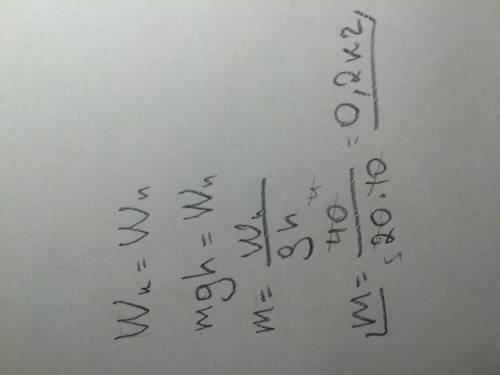 Wк = Wп
mgh = Wп
m = Wп / gh
m = 40 / 20·10 = 0,2 кг